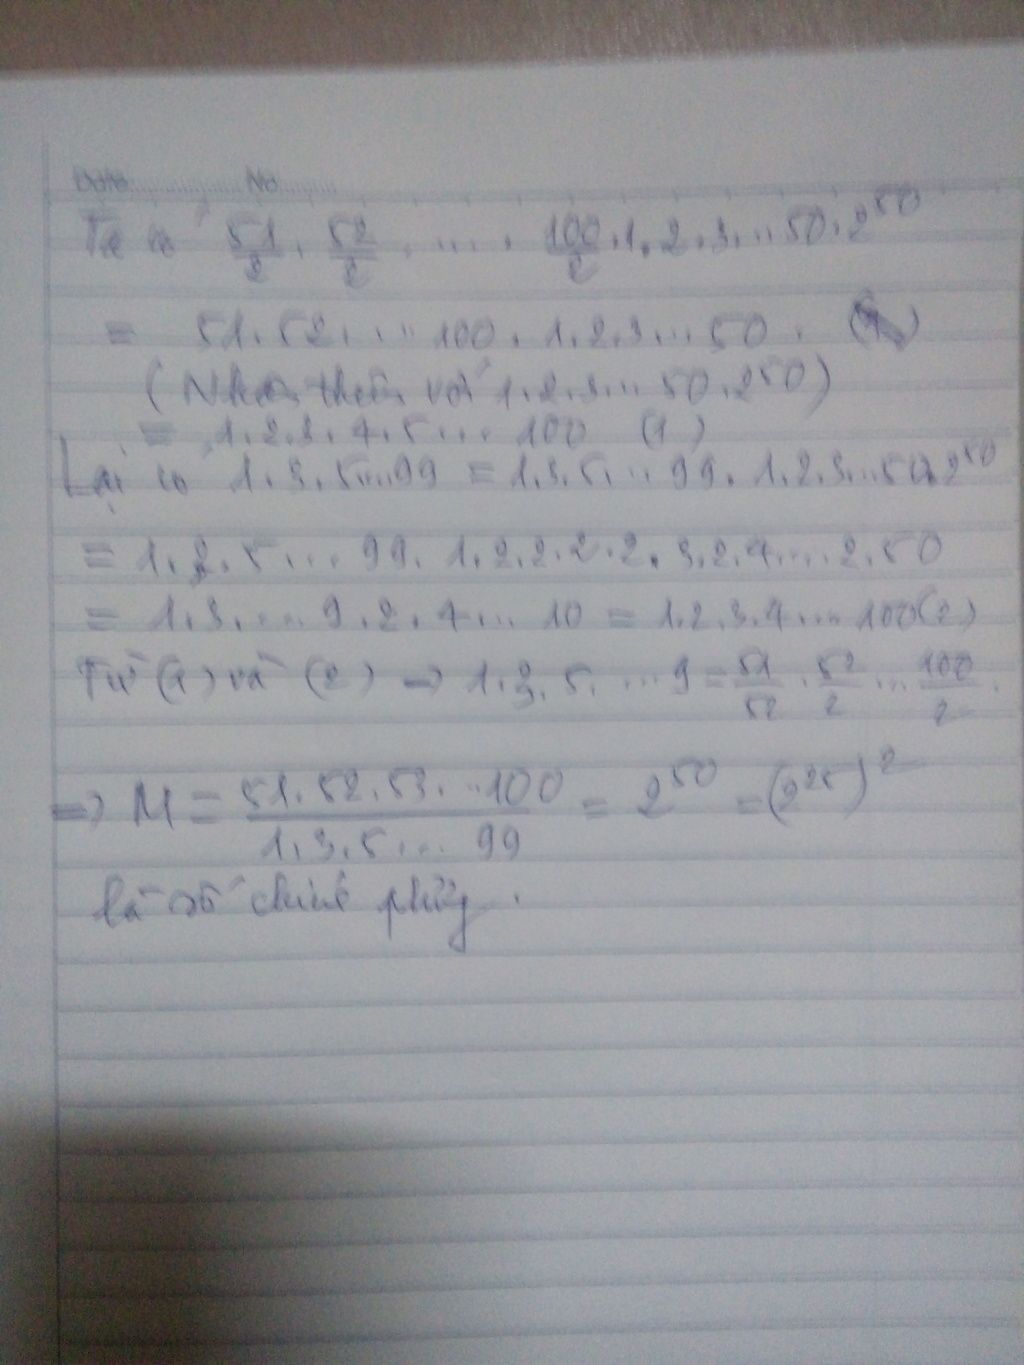 Date No
Ta có 51/2 . 52/2 . .... . 100/2 . 1 . 2 . 3 ... 50 . 2^50
= 51 . 52 . ... 100 . 1 . 2 . 3 ... 50 .
( Nhân thêm với 1 . 2 . 3 ... 50 . 2^50 )
= 1 . 2 . 3 . 4 . 5 ... 100 (1)
Lại có 1 . 3 . 5 ... 99 = 1 . 3 . 5 ... 99 . 1 . 2 . 3 ... 50 . 2^50
= 1 . 3 . 5 ... 99 . 1 . 2 . 2 . 2 . 2 . 3 . 2 . 4 .... 2 . 50
= 1 . 3 . ... 9 . 2 . 4 ... 10 = 1 . 2 . 3 . 4 ... 100 (2)
Từ (1) và (2) => 1 . 3 . 5 . ... 9 = 51/52 . 52/2 ... 100/2 .
=> M = 51 . 52 . 53 . ... 100 / 1 . 3 . 5 ... 99 = 2^50 = (2^25)^2
là số chính phương .